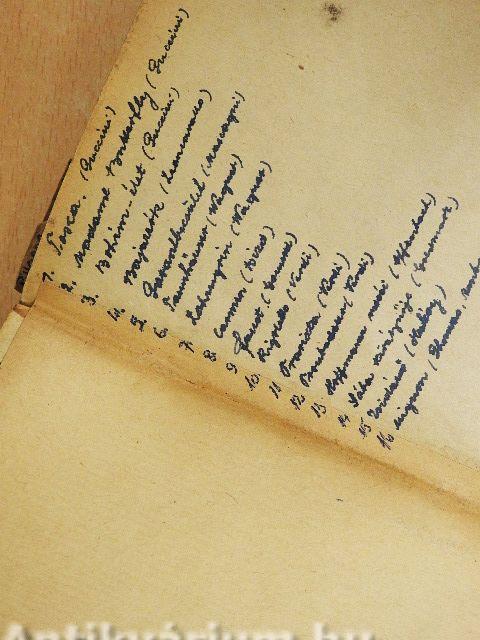 1. Tosca. (Puccini)
2. Madame Butterfly (Puccini)
3. Bohém-élet (Puccini)
4. Bajazzók (Leoncavallo)
5. Parasztbecsület (Mascagni)
6. Tannhäuser (Wagner)
7. Lohengrin (Wagner)
8. Carmen (Bizet)
9. Faust (Gounod)
10. Rigoletto (Verdi)
11. Traviata (Verdi)
12. (Verdi)
13. Hoffmann meséi (Offenbach)
14. Sába királynője (Goldmark)
15. Zsidónő (Halévy)
16. Mignon (Thomas,
Antikvárium.hu